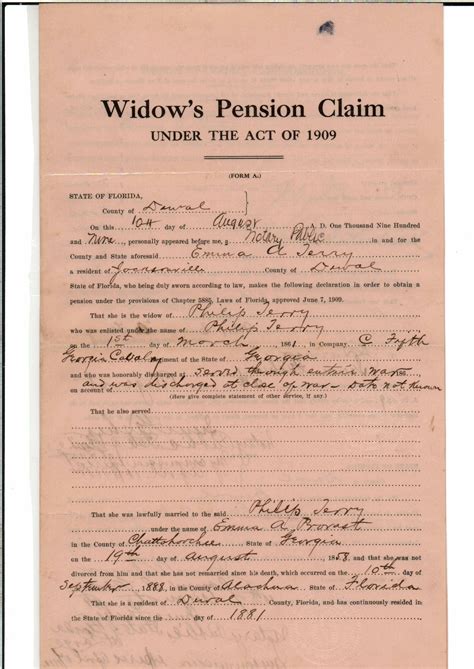 Widow's Pension Claim
UNDER THE ACT OF 1909
(FORM A.)
STATE OF FLORIDA,
County of Duval
On this 10th day of August D. One Thousand Nine Hundred
and Nine, personally appeared before me, a Notary Public in and for the
County and State aforesaid Emma A Terry
a resident of Jacksonville County of Duval
State of Florida, who being duly sworn according to law, makes the following declaration in order to obtain a
pension under the provisions of Chapter 5885, Laws of Florida, approved June 7, 1909.
That she is the widow of Philip Terry
who was enlisted under the name of Philip Terry
on the 1st day of March 1861, in Company C Fifth
Georgia Cavalry Regiment of the State of Georgia
and who was honorably discharged at served through entire war 186
and was discharged at close of war - Date not known
(Here give complete statement of other service, if any.)
That he also served
That she was lawfully married to the said Philip Terry
under the name of Emma A Provost in
Chattahoochee State of Georgia
on the 19th day of August 1858, and that she was not
divorced from him and that she has not remarried since his death, which occurred on the 10th day of
September 1888, in County of Alachua State of Florida
That she is a resident of Duval County, Florida, and has continuously resided in
the State of Florida since the day of 1881